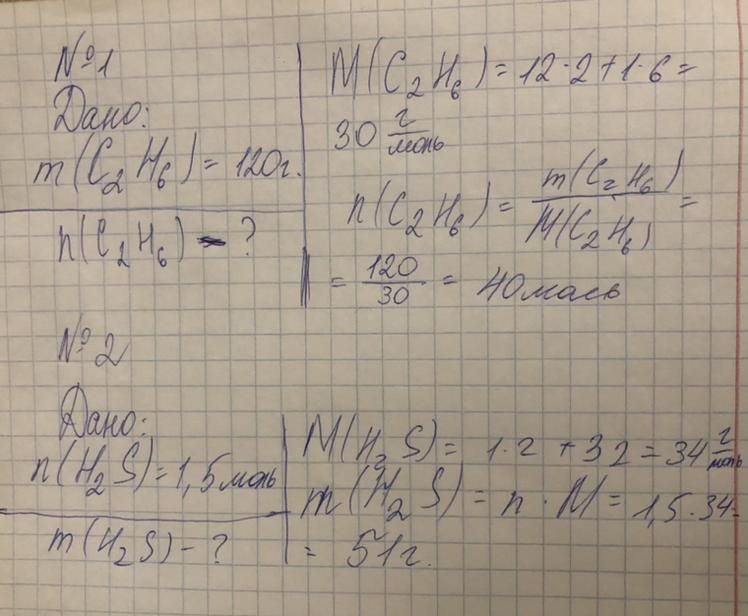 №1
Дано:
m(C₂H₆) = 120г.
n(C₂H₆) - ?
M(C₂H₆) = 12·2+1·6 =
30 г/моль
n(C₂H₆) = m(C₂H₆)/M(C₂H₆) =
= 120/30 = 40 моль
№2
Дано:
n(H₂S) = 1,5 моль
m(H₂S) - ?
M(H₂S) = 1·2 + 32 = 34 г/моль
m(H₂S) = n · M = 1,5·34=
= 51г.